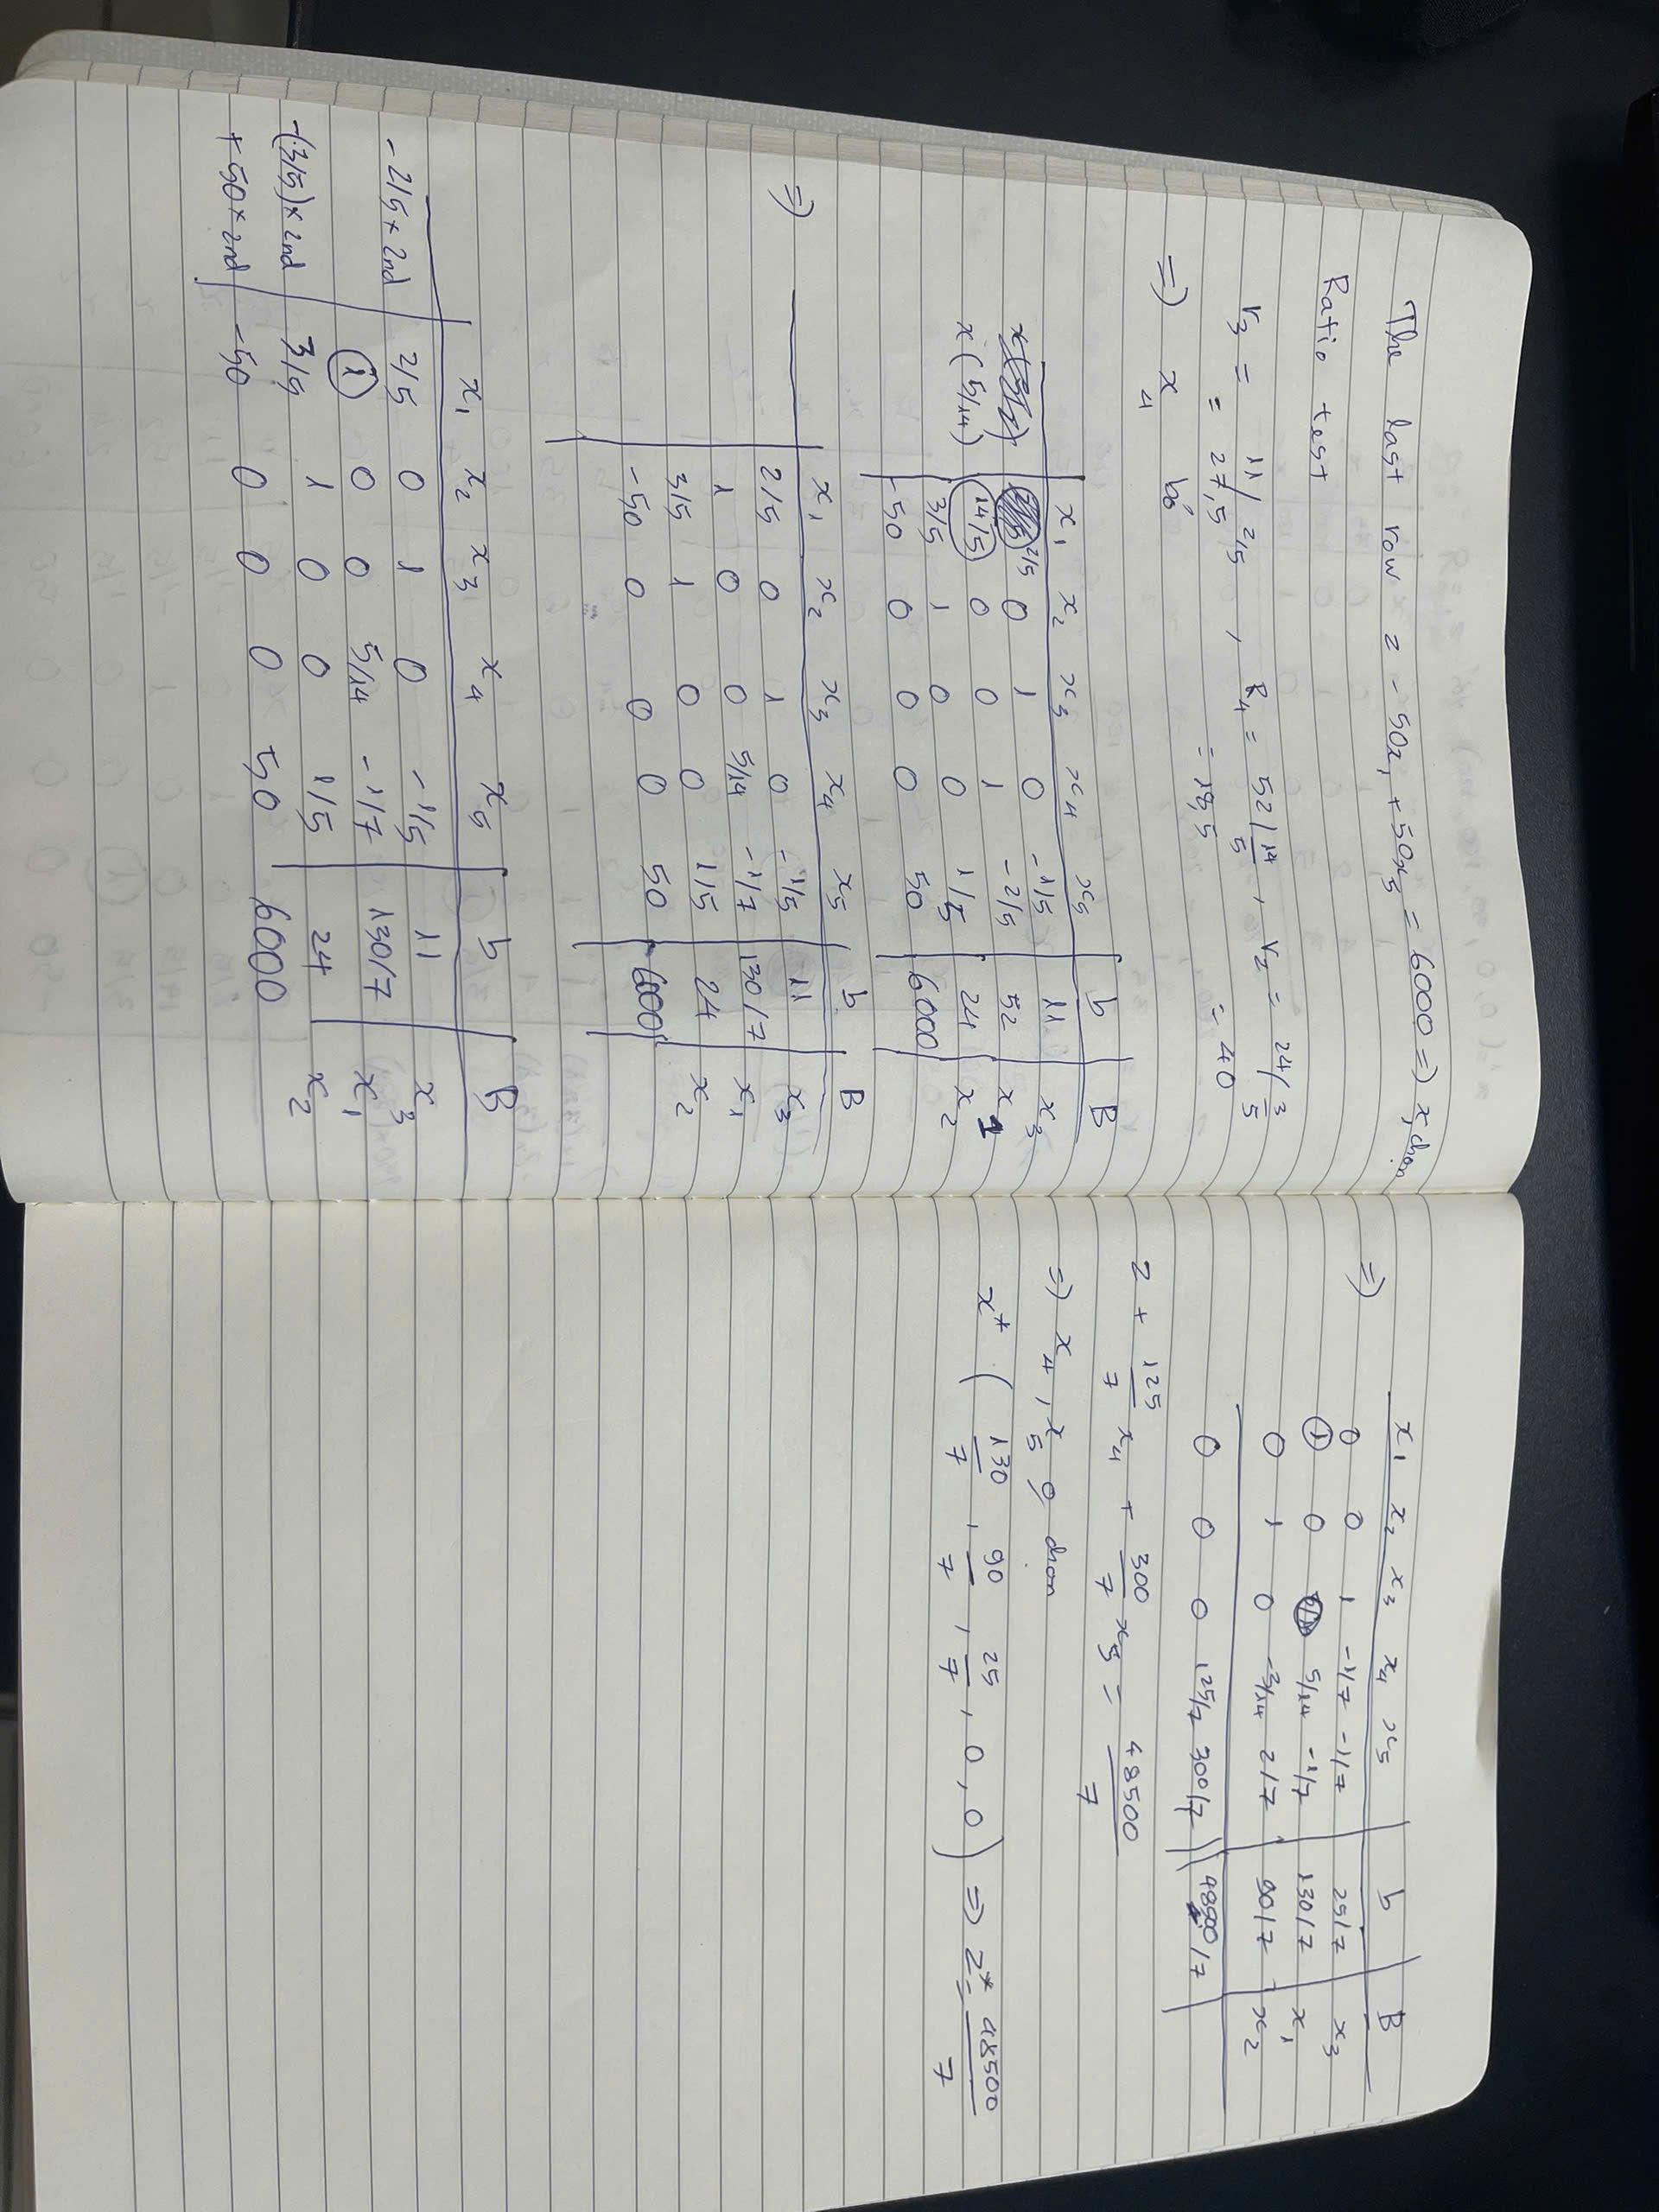 The last row = -50x₁ + 50x₅ = 6000 => x₁ chọn
Ratio test
r₃ = 11/2/5 , R₄ = 52/14/5 , r₂ = 24/3/5
= 27,5 = 18,5 = 40
=> x₄ bỏ
x₁ x₂ x₃ x₄ x₅ b B
2/5 0 1 0 -1/5 11 x₃
x(5/14) 14/5 0 0 1 -2/5 52 x₁
3/5 1 0 0 1/5 24 x₂
-50 0 0 0 50 6000
=>
x₁ x₂ x₃ x₄ x₅ b B
2/5 0 1 0 -1/5 11 x₃
1 0 0 5/14 -1/7 130/7 x₁
3/5 1 0 0 1/5 24 x₂
-50 0 0 0 50 6000
x₁ x₂ x₃ x₄ x₅ b B
-2/5 x 2nd 2/5 0 1 0 -1/5 11 x₃
1 0 0 5/14 -1/7 130/7 x₁
-(3/5) x 2nd 3/5 1 0 0 1/5 24 x₂
+50 x 2nd -50 0 0 0 50 6000
=> x₁ x₂ x₃ x₄ x₅ b B
0 0 1 -1/7 -1/7 25/7 x₃
1 0 5/14 -1/7 130/7 x₁
0 1 0 -3/14 2/7 90/7 x₂
0 0 0 125/7 300/7 48500/7
Z + 125/7 x₄ + 300/7 x₅ = 48500/7
=> x₄, x₅ chọn
x* ( 130/7 , 90/7 , 25/7 , 0 , 0 ) => Z* = 48500/7